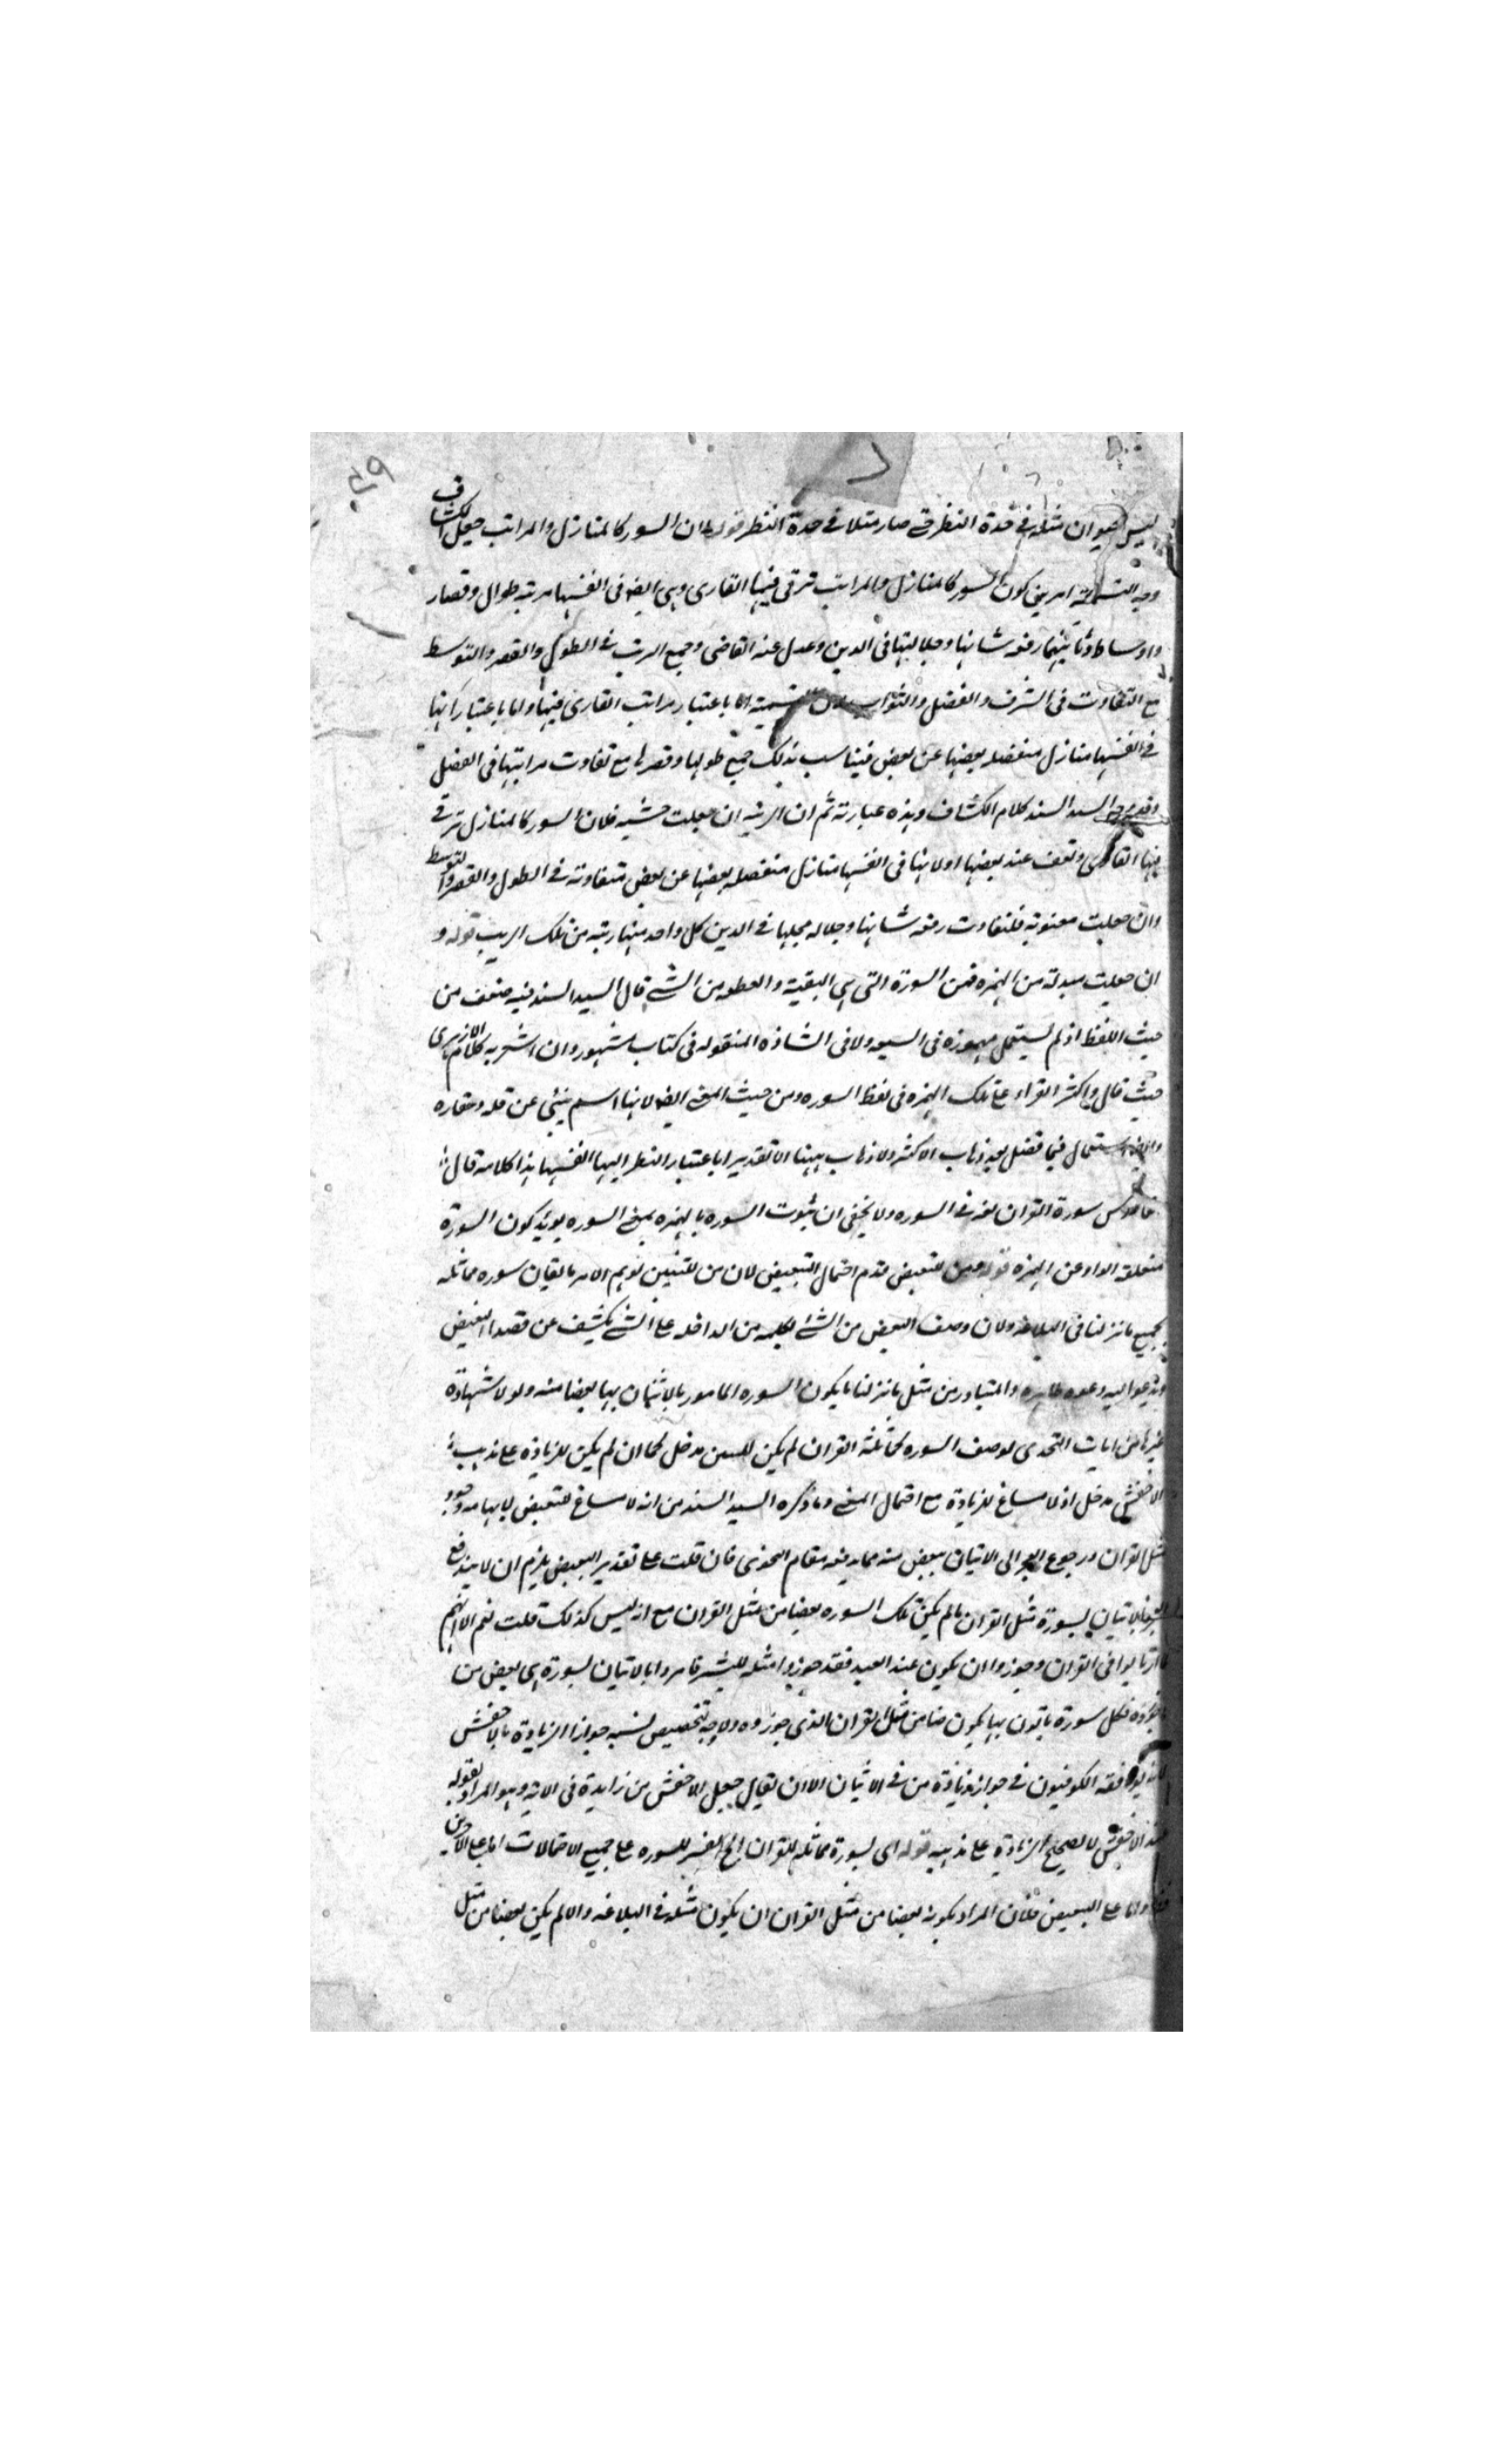 ليس حيوان مثله في حدة النظر حتى صار مثلا في حدة النظر قوله لان السور كالمنازل والمراتب جعل الكشاف
وجه التسمية امرين كون السور كالمنازل والمراتب ترقى فيها القارى وهى ايضا فى انفسها مرتبه طوال وقصار
واوساط وثانيهما رفعه شانها وجلالتها فى الدين وعدل عنه القاضى وجمع الرتب في الطول والقصر والتوسط
مع التفاوت فى الشرف والفضل والثواب لان التسمية اما باعتبار مراتب القارى فيها واما باعتبار انها
في انفسها منازل منفصله بعضها عن بعض فيناسب ذلك جمع طولها وقصرها مع تفاوت مراتبها فى الفضل
السيد السند كلام الكشاف وهذه عبارته ثم ان الرتبه ان جعلت حسيه فلان السور كالمنازل ترقى
فيها القارى وتقف عند بعضها اولانها فى انفسها منازل منفصله بعضها عن بعض متفاوته في الطول والقصر والتوسط
وان جعلت معنويه فلتفاوت رفعه شانها وجلاله محلها في الدين كل واحد منها رتبه من تلك الرتب قوله و
ان جعلت مبدلة من الهمزه فمن السورة التى هى البقية والقطعه من الشئ قال السيد السند فيه ضعف من
حيث اللفظ اذ لم يستعمل مهموزه فى السبعه ولا فى الشاذه المنقوله فى كتاب مشهور وان اشعر به كلام الازهرى
حيث قال واكثر القراء على ترك الهمزه فى لفظ السوره ومن حيث المعنى ايضا لانها اسم ينبئ عن قله وحقاره
استعمال فيما فضل بعد ذهاب الاكثر ولا ذهاب ههنا الا تقديرا باعتبار النظر اليها انفسها هذا كلامه قال
سورة القران لغه في السوره ولا يخفى ان ثبوت السوره بالهمزه بمعنى السوره يؤيد كون السورة
منقلبة الواو عن الهمزه قوله ومن للتبعيض قدم احتمال التبعيض لان من للتبيين توهم الامر باتيان سوره مماثله
لجميع ما نزلنا فى البلاغه ولان وصف البعض من الشئ بكلمه من الداخله على الشئ يكشف عن قصد التبعيض
ويدعو اليه دعوه ظاهره والمتبادر من مثل ما نزلنا ما يكون السوره المامور بالاتيان بها بعضا منه ولولا شهادة
غيرها من ايات التحدى لوصف السوره بمماثلة القران لم يكن للتبيين مدخل كما ان لم يكن للزيادة على مذهب
الاخفش مدخل اذ لا مساغ للزيادة مع احتمال المعنى وما ذكره السيد السند من انه لا مساغ للتبعيض لايهامه وجود
مثل القران ورجوع العجز الى الاتيان ببعض منه مما يدفعه مقام التحدى فان قلت على تقدير التبعيض يلزم ان لا يندفع
بالاتيان بسورة مثل القران ما لم يكن تلك السوره بعضا من مثل القران مع انه ليس كذلك قلت نعم الا انهم
ارتابوا فى القران وجوزوا ان يكون عند العبد فقد جوزوا مثله للبشر فامروا بالاتيان بسورة هى بعض من
فكل سورة ياتون بها يكون بعضا من مثل القران الذى جوزوه ولا وجه لتخصيص نسبه جواز الزيادة بالاخفش
لانه يوافقه الكوفيون في جواز زيادة من في الاثبات الا ان يقال جعل الاخفش من زايدة فى الاية وهو المراد بقوله
عند الاخفش لا تصحيح الزيادة على مذهبه قوله اى بسورة مماثلة للقران الخ تفسير للسوره على جميع الاحتمالات اما على الاخيرين
واما على التبعيض فلان المراد بكونه بعضا من مثل القران ان يكون مثله في البلاغه والا لم يكن بعضا من مثل